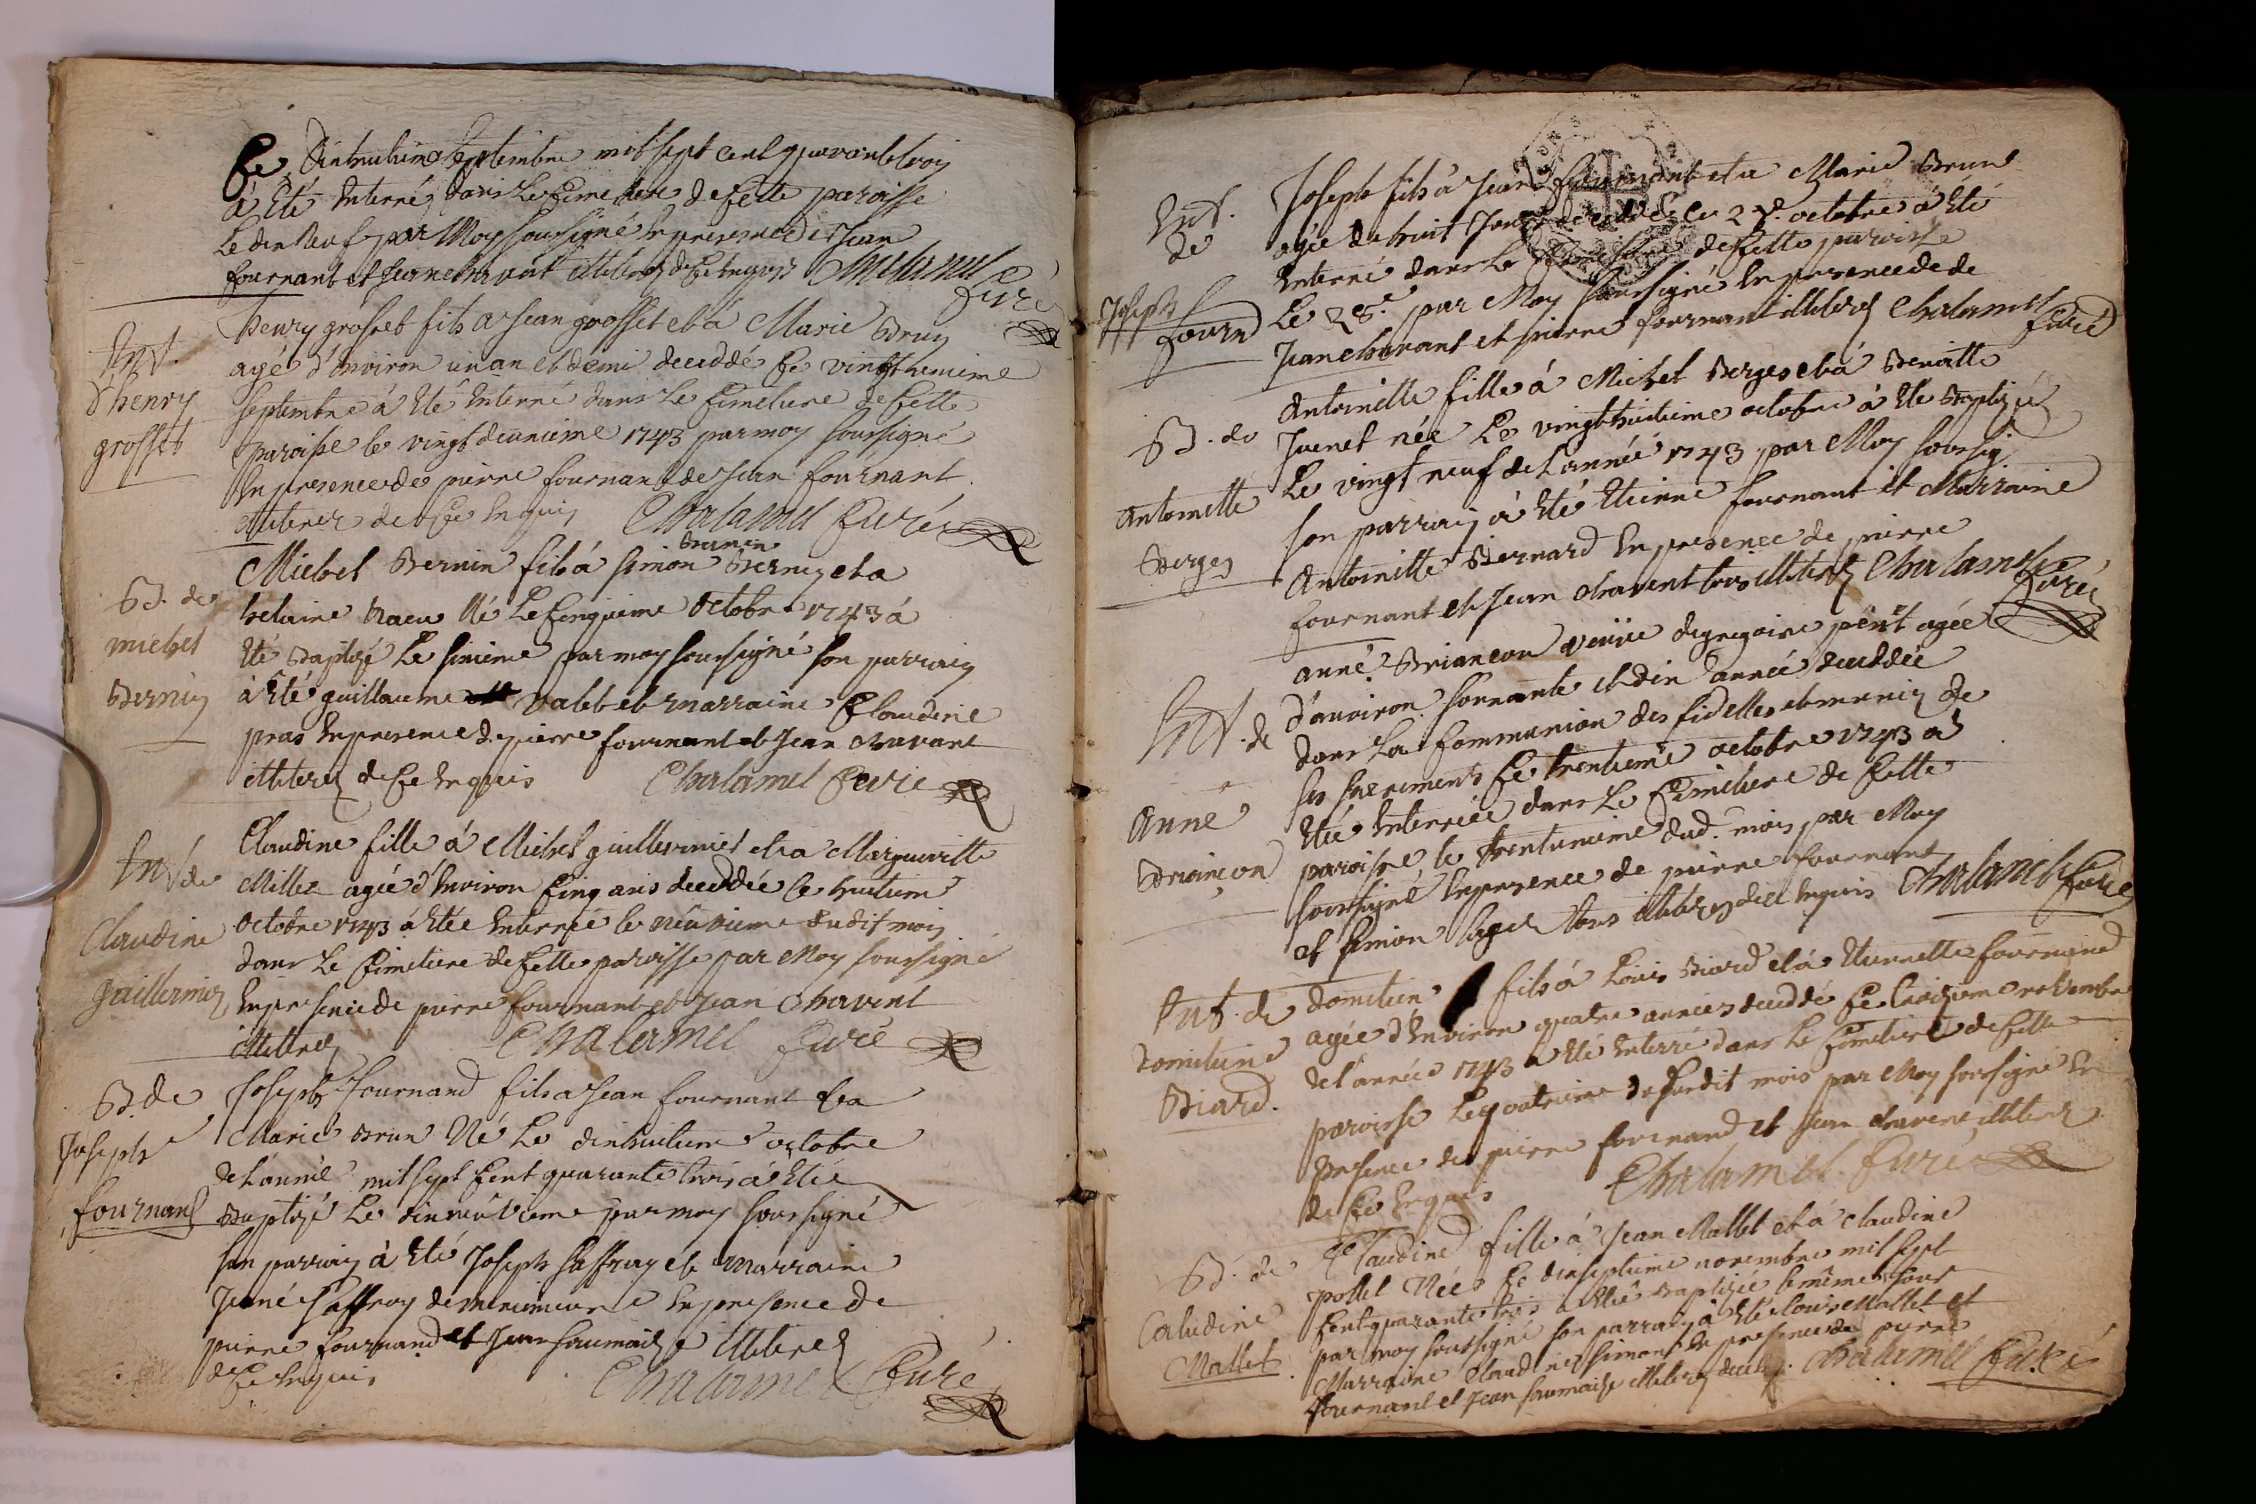 Le dixhuitieme septembre mil sept cent quarante trois
à été enterré dans le cimetiere de cette paroisse
le dix neuf par moy soussigné en presence de Jean
fournant et Jean chavant illiteres de ce enquis Chalamel Curé
Ent.
d'henry
grosset
henry grosset fils a Jean grosset et à Marie Brun
agé d'environ un an et demi deceddé le vingthunieme
septembre à été enterré dans le cimetiere de cette
paroisse le vingt deuxieme 1743 par moy soussigné
en presence de pierre fournant de Jean fournant
illiterez de ce enquis Chalamel Curé
B. de
michel
Bernin
Michel Bernin fils à simon Bernin et a
helaine né le cinquieme octobre 1743 à
été Baptizé le sixieme par moy soussigné son parrain
à été guillaume valet et marraine Claudine
pras en presence de pierre fournant et Jean chavant
illiterez de ce enquis Chalamel Curé
Ent de
Claudine
guillermin
Claudine fille à Michel guillermiet et a Margueritte
Millet agée d'environ cinq ans deceddée le huitiem
octobre 1743 à étée enterrée le neuvieme dudit mois
dans le cimetiere de cette paroisse par moy soussigné
en presence de pierre fournant et Jean chavent
illiterez Chalamel Curé
B. de
Joseph
fournant
Joseph fournand fils a Jean fournant et a
Marie Brun né le dixhuitieme octobre
de l'année mil sept cent quarante trois à étée
Baptizé le dixneuvieme par moy soussigné
son parrain à été Joseph saffray et marraine
saffroy en presence de
pierre fournand et Jean saumaize illiterez
de ce enquis Chalamel Curé
Ent.
de
Joseph
fourn
Joseph fils à Jean fournant et a Marie Brun
agée de huit Jours deceddé le 27. octobre à été
enterré dans le cimetiere de cette paroisse
le 28.e par moy soussigné en presence de
Jean chavant et pierre fournant illiterez Chalamel Curé
B. de
Antoinette
Berges
Antoinette fille à Michel Berges et à Benoitte
Juenet née le vingthuitieme octobre à été Baptizée
le vingt neuf de l'année 1743 par moy soussig
son parrain à été Etienne fournant et Marraine
Antoinette Bernard en presence de pierre
fournant et Jean chavent tous illiterez Chalamel Curé
Ent. de
Anne
Briançon
anne Briancon veuve de gregoire petit agée
d'anviron soixante et dix année deceddée
dans la Communion des fidelles et munis de
ses sacrements le trentieme octobre 1743 a
étée enterrée dans le cimetiere de cette
paroisse le trentunieme dud. mois par moy
soussigné en presence de pierre fournant
et simion tous illiterez de ce enquis Chalamel Curé
Ent. de
Domitiene
Biard.
Domitien fils à Louis Biard et à Etiennette fournand
agée d'environ quatre annéez deceddé le troizieme novembre
de l'année 1743 a été enterré dans le cimetiere de cette
paroisse le quatrieme de susdit mois par moy soussigné en
presence de pierre fournand et Jean chavent illiterez
de ce enquis Chalamel Curé
B. de
Caludine
Mallet
Claudine fille à Jean Mallet et à claudine
pollet née le dixseptieme novembre mil sept
cent quarante trois a étée Baptizée le même jour
par moy soussigné son parrain à été louis Mallet et
Marraine Claudine simont en presence de pierre
fournant et Jean saumaize illiterez de ce enq. Chalamel Curé